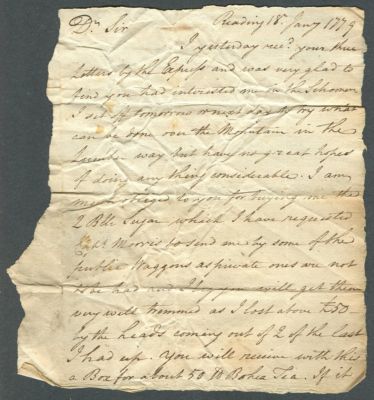 Dr Sir Reading 18 Jany 1779
I yesterday recd. your three
Letters by the Express and was very glad to
find you had interested me in the Schooner
I set off tomorrow or next day to try what
can be done over the Mountain in the
way but have no great hopes
of doing any thing considerable. I am
much obliged to you for buying me the
2 Bbls Sugar which I have requested
Capt Morris to send me by some of the
public Waggons as private ones are not
to be had and I beg you will get them
very well trimmed as I lost above £50
by the heads coming out of 2 of the last
I had up. You will receive with this
a Box for about 50 lb Bohea Tea. If it